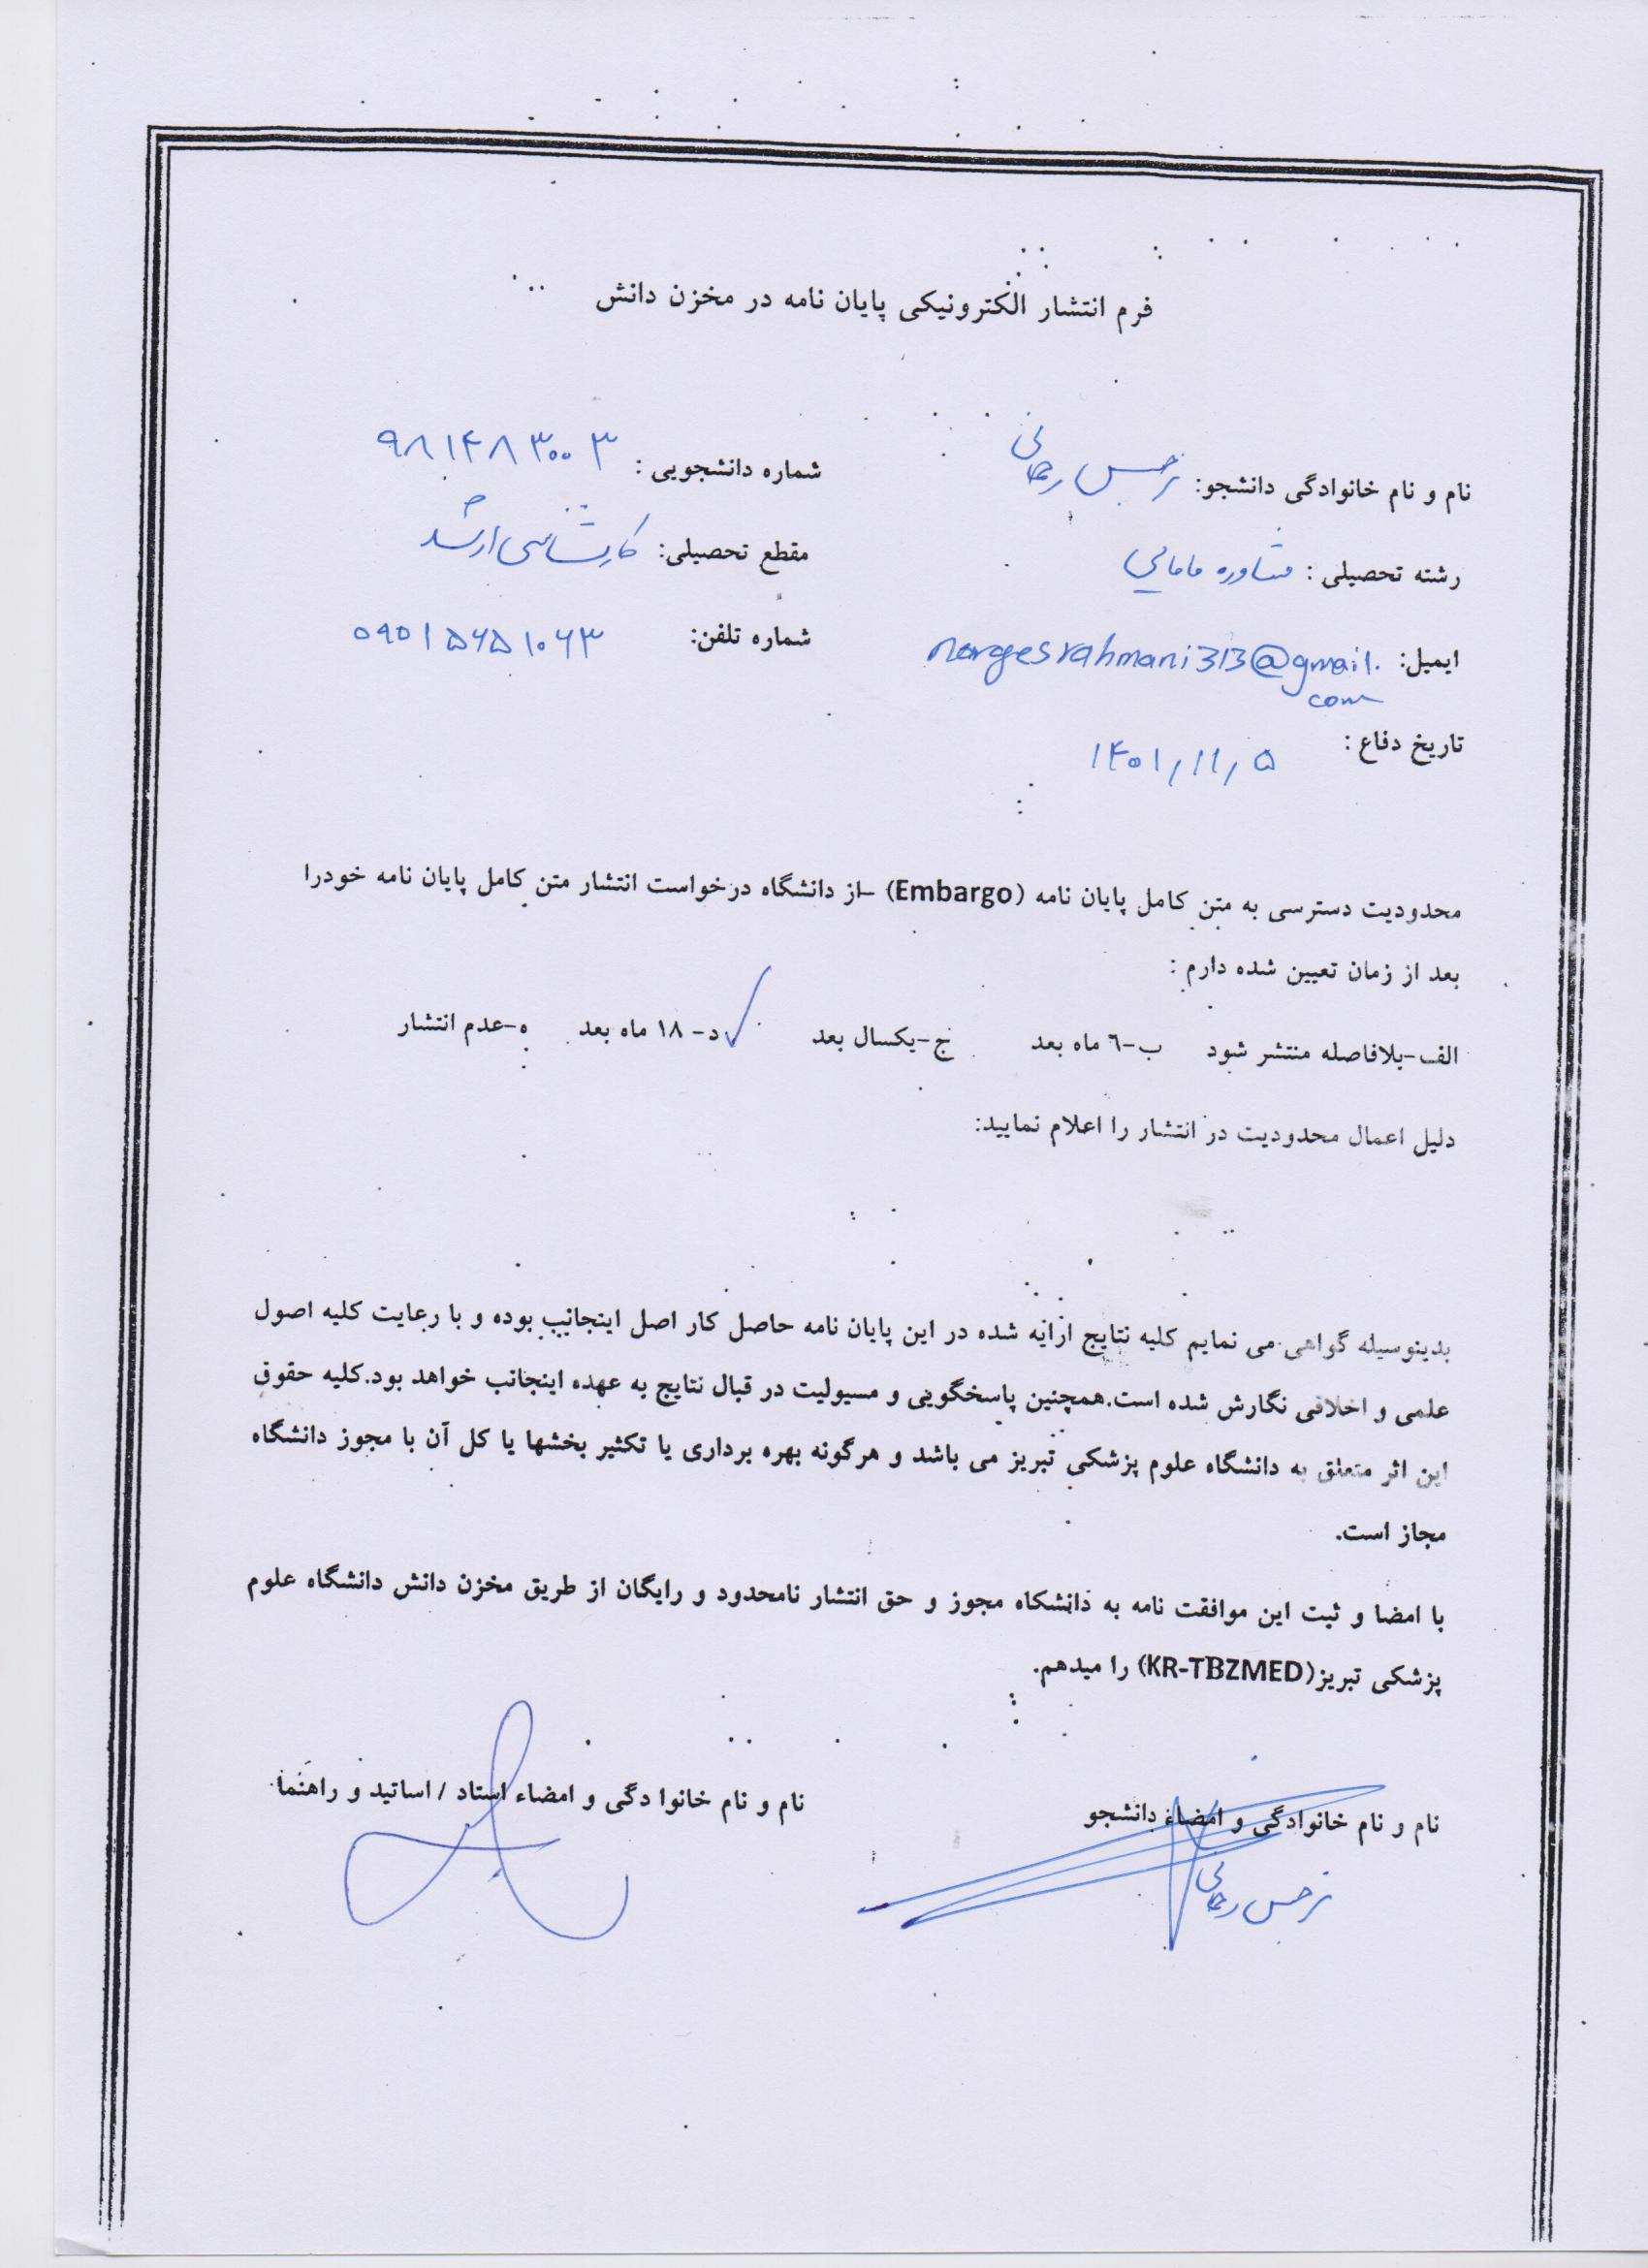 فرم انتشار الکترونیکی پایان نامه در مخزن دانش
نام و نام خانوادگی دانشجو: نرجس رحمانی شماره دانشجویی : ۹۸۱۴۸۳۰۰۳
رشته تحصیلی : مشاوره مامایی مقطع تحصیلی: کارشناسی ارشد
ایمیل: nargesrahmani313@gmail. شماره تلفن: ۰۹۰۱۵۶۵۱۰۶۳
com
تاریخ دفاع : ۱۴۰۱/۱۱/۵
محدودیت دسترسی به متن کامل پایان نامه (Embargo) –از دانشگاه درخواست انتشار متن کامل پایان نامه خودرا
بعد از زمان تعیین شده دارم :
الف-بلافاصله منتشر شود ب-٦ ماه بعد ج-یکسال بعد ✓د- ۱۸ ماه بعد ه-عدم انتشار
دلیل اعمال محدودیت در انتشار را اعلام نمایید:
بدینوسیله گواهی می نمایم کلیه نتایج ارایه شده در این پایان نامه حاصل کار اصل اینجانب بوده و با رعایت کلیه اصول
علمی و اخلاقی نگارش شده است.همچنین پاسخگویی و مسیولیت در قبال نتایج به عهده اینجانب خواهد بود.کلیه حقوق
این اثر متعلق به دانشگاه علوم پزشکی تبریز می باشد و هرگونه بهره برداری یا تکثیر بخشها یا کل آن با مجوز دانشگاه
مجاز است.
با امضا و ثبت این موافقت نامه به دانشکاه مجوز و حق انتشار نامحدود و رایگان از طریق مخزن دانش دانشگاه علوم
پزشکی تبریز(KR-TBZMED) را میدهم.
نام و نام خانوادگی و امضاء دانشجو نام و نام خانوا دگی و امضاء استاد / اساتید و راهنما
نرجس رحمانی